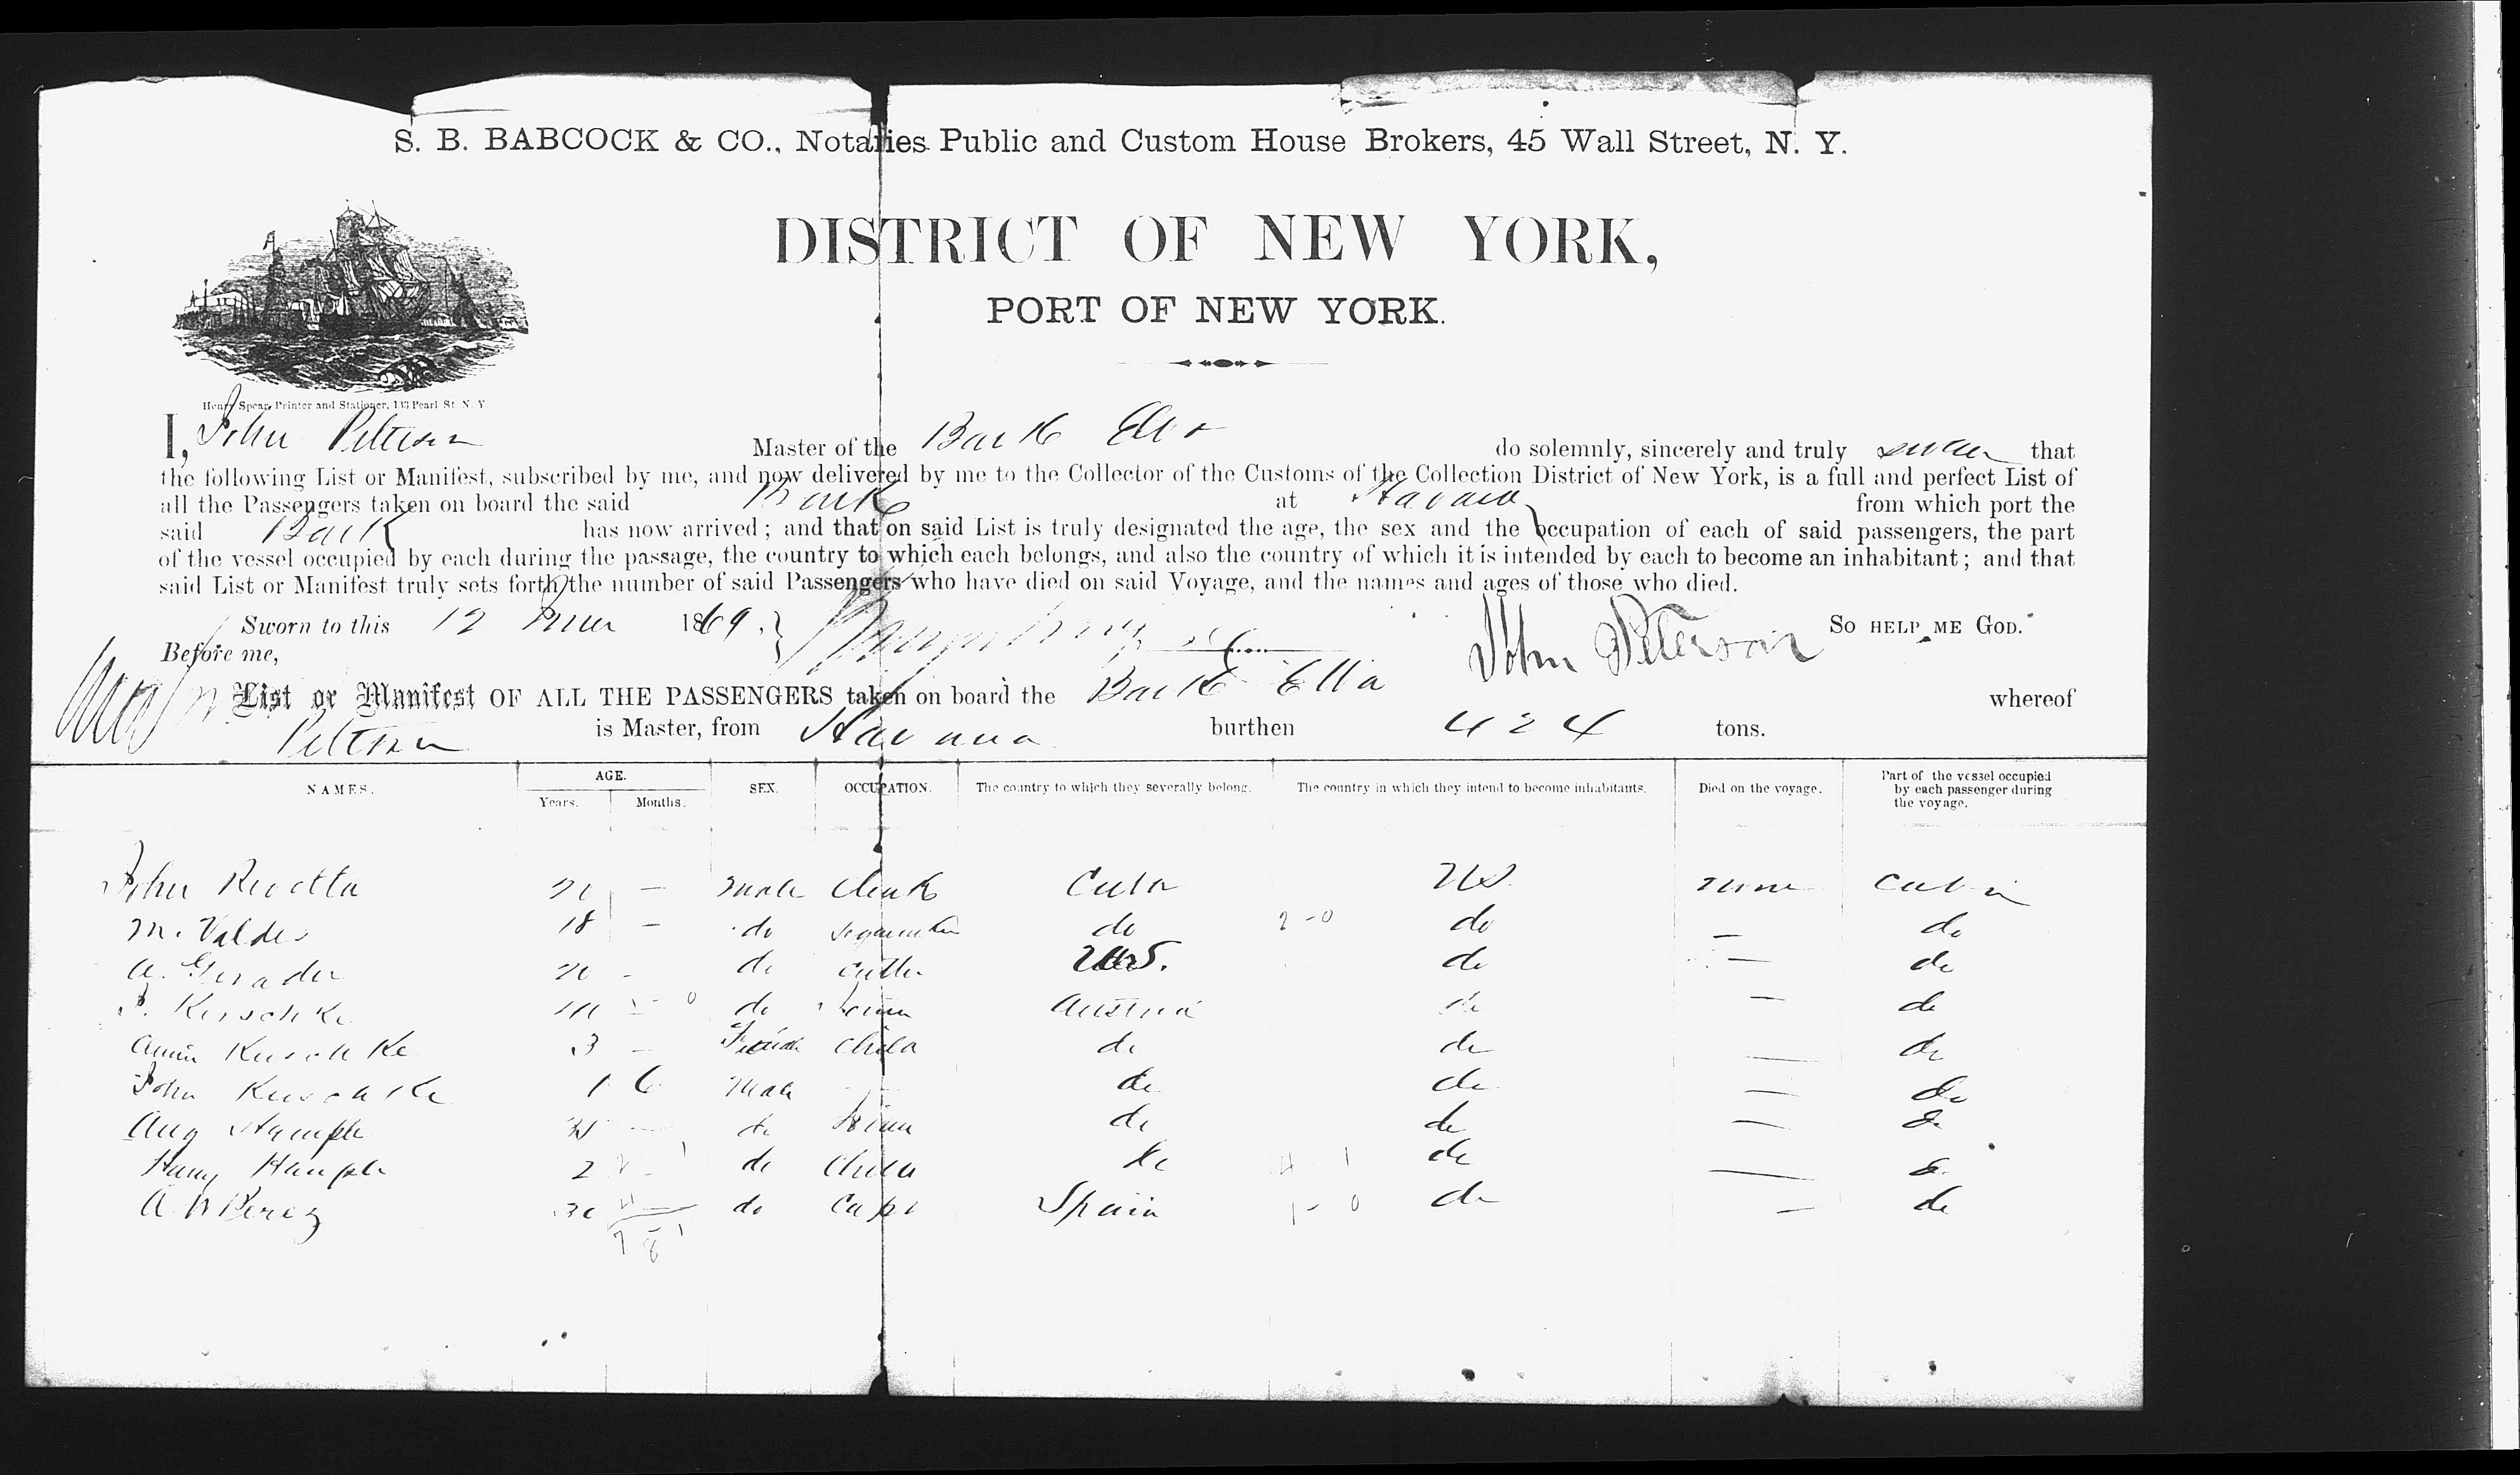 S. B. BABCOCK & CO., Notaries Public and Custom House Brokers, 45 Wall Street, N. Y.
DISTRICT OF NEW YORK,
PORT OF NEW YORK.
Henry Spear, Printer and Stationer, 133 Pearl St. N. Y
I, John Peterson Master of the Bark Ella do solemnly, sincerely and truly swear that
the following List or Manifest, subscribed by me, and now delivered by me to the Collector of the Customs of the Collection District of New York, is a full and perfect List of
all the Passengers taken on board the said Bark at Havana from which port the
said Bark has now arrived; and that on said List is truly designated the age, the sex and the occupation of each of said passengers, the part
of the vessel occupied by each during the passage, the country to which each belongs, and also the country of which it is intended by each to become an inhabitant; and that
said List or Manifest truly sets forth the number of said Passengers who have died on said Voyage, and the names and ages of those who died.
Sworn to this 12 1869. John Peterson SO HELP ME GOD.
Before me,
List or Manifest OF ALL THE PASSENGERS taken on board the Bark Ella whereof
Peterson is Master, from Havana burthen 424 tons.
NAMES. AGE. Years. Months. SEX. OCCUPATION. The country to which they severally belong. The country in which they intend to become inhabitants. Died on the voyage. Part of the vessel occupied by each passenger during the voyage.
John — male Clerk Cuba US none Cabin
M. Valdes 18 — do do do — do
A. - do U.S. do — do
Kerschke do Austria do — do
Kerschke 3 — Female Child do do — do
John Kerschke 1 6 Male do do — do
Aug Hample — do do do — do
Harry Hample 2 do Child do do — do
A. Perez 30 do Capt Spain do — do